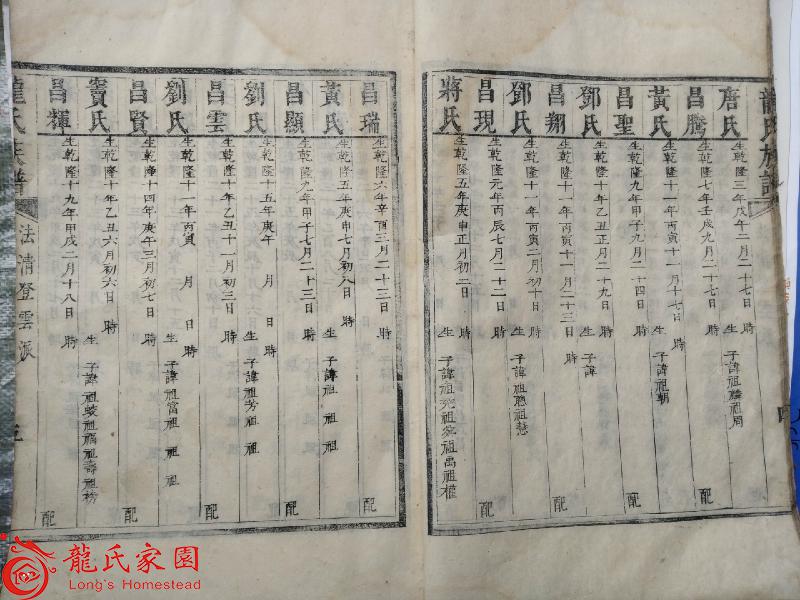 龍氏族譜
唐氏 生乾隆三年戊午二月二十七日 時 生 子諱祖麟祖周
昌騰 生乾隆七年壬戌九月二十日 時 配
黃氏 生乾隆十一年丙寅十一月十七日 時 生 子諱祖朝
昌聖 生乾隆九年甲子九月二十四日 時 配
鄧氏 生乾隆十年乙丑正月二十九日 時 生 子諱
昌翔 生乾隆十一年丙寅十一月二十三日 時 配
鄧氏 生乾隆十一年丙寅二月初十日 時 生 子諱祖聰祖慧
昌現 生乾隆元年丙辰七月二十二日 時 配
蔣氏 生乾隆五年庚申正月初二日 時 生 子諱祖堯祖 祖禹祖權
昌瑞 生乾隆六年辛酉三月二十三日 時 配
黃氏 生乾隆五年庚申七月初八日 時 生 子諱祖 祖
昌顯 生乾隆九年甲子七月二十三日 時 配
劉氏 生乾隆十五年庚午 月 日 時 生 子諱祖芳祖 祖
昌雲 生乾隆十年乙丑十一月初三日 時 配
劉氏 生乾隆十一年丙寅 月 日 時 生 子諱祖富祖 祖
昌賢 生乾隆十四年庚午三月初七日 時 配
竇氏 生乾隆十年乙丑六月初六日 時 生 子諱祖 祖福祖壽祖
昌輝 生乾隆十九年甲戌二月十八日 時 配
龍氏族譜 法清登雲派
龍氏家園
Long's Homestead